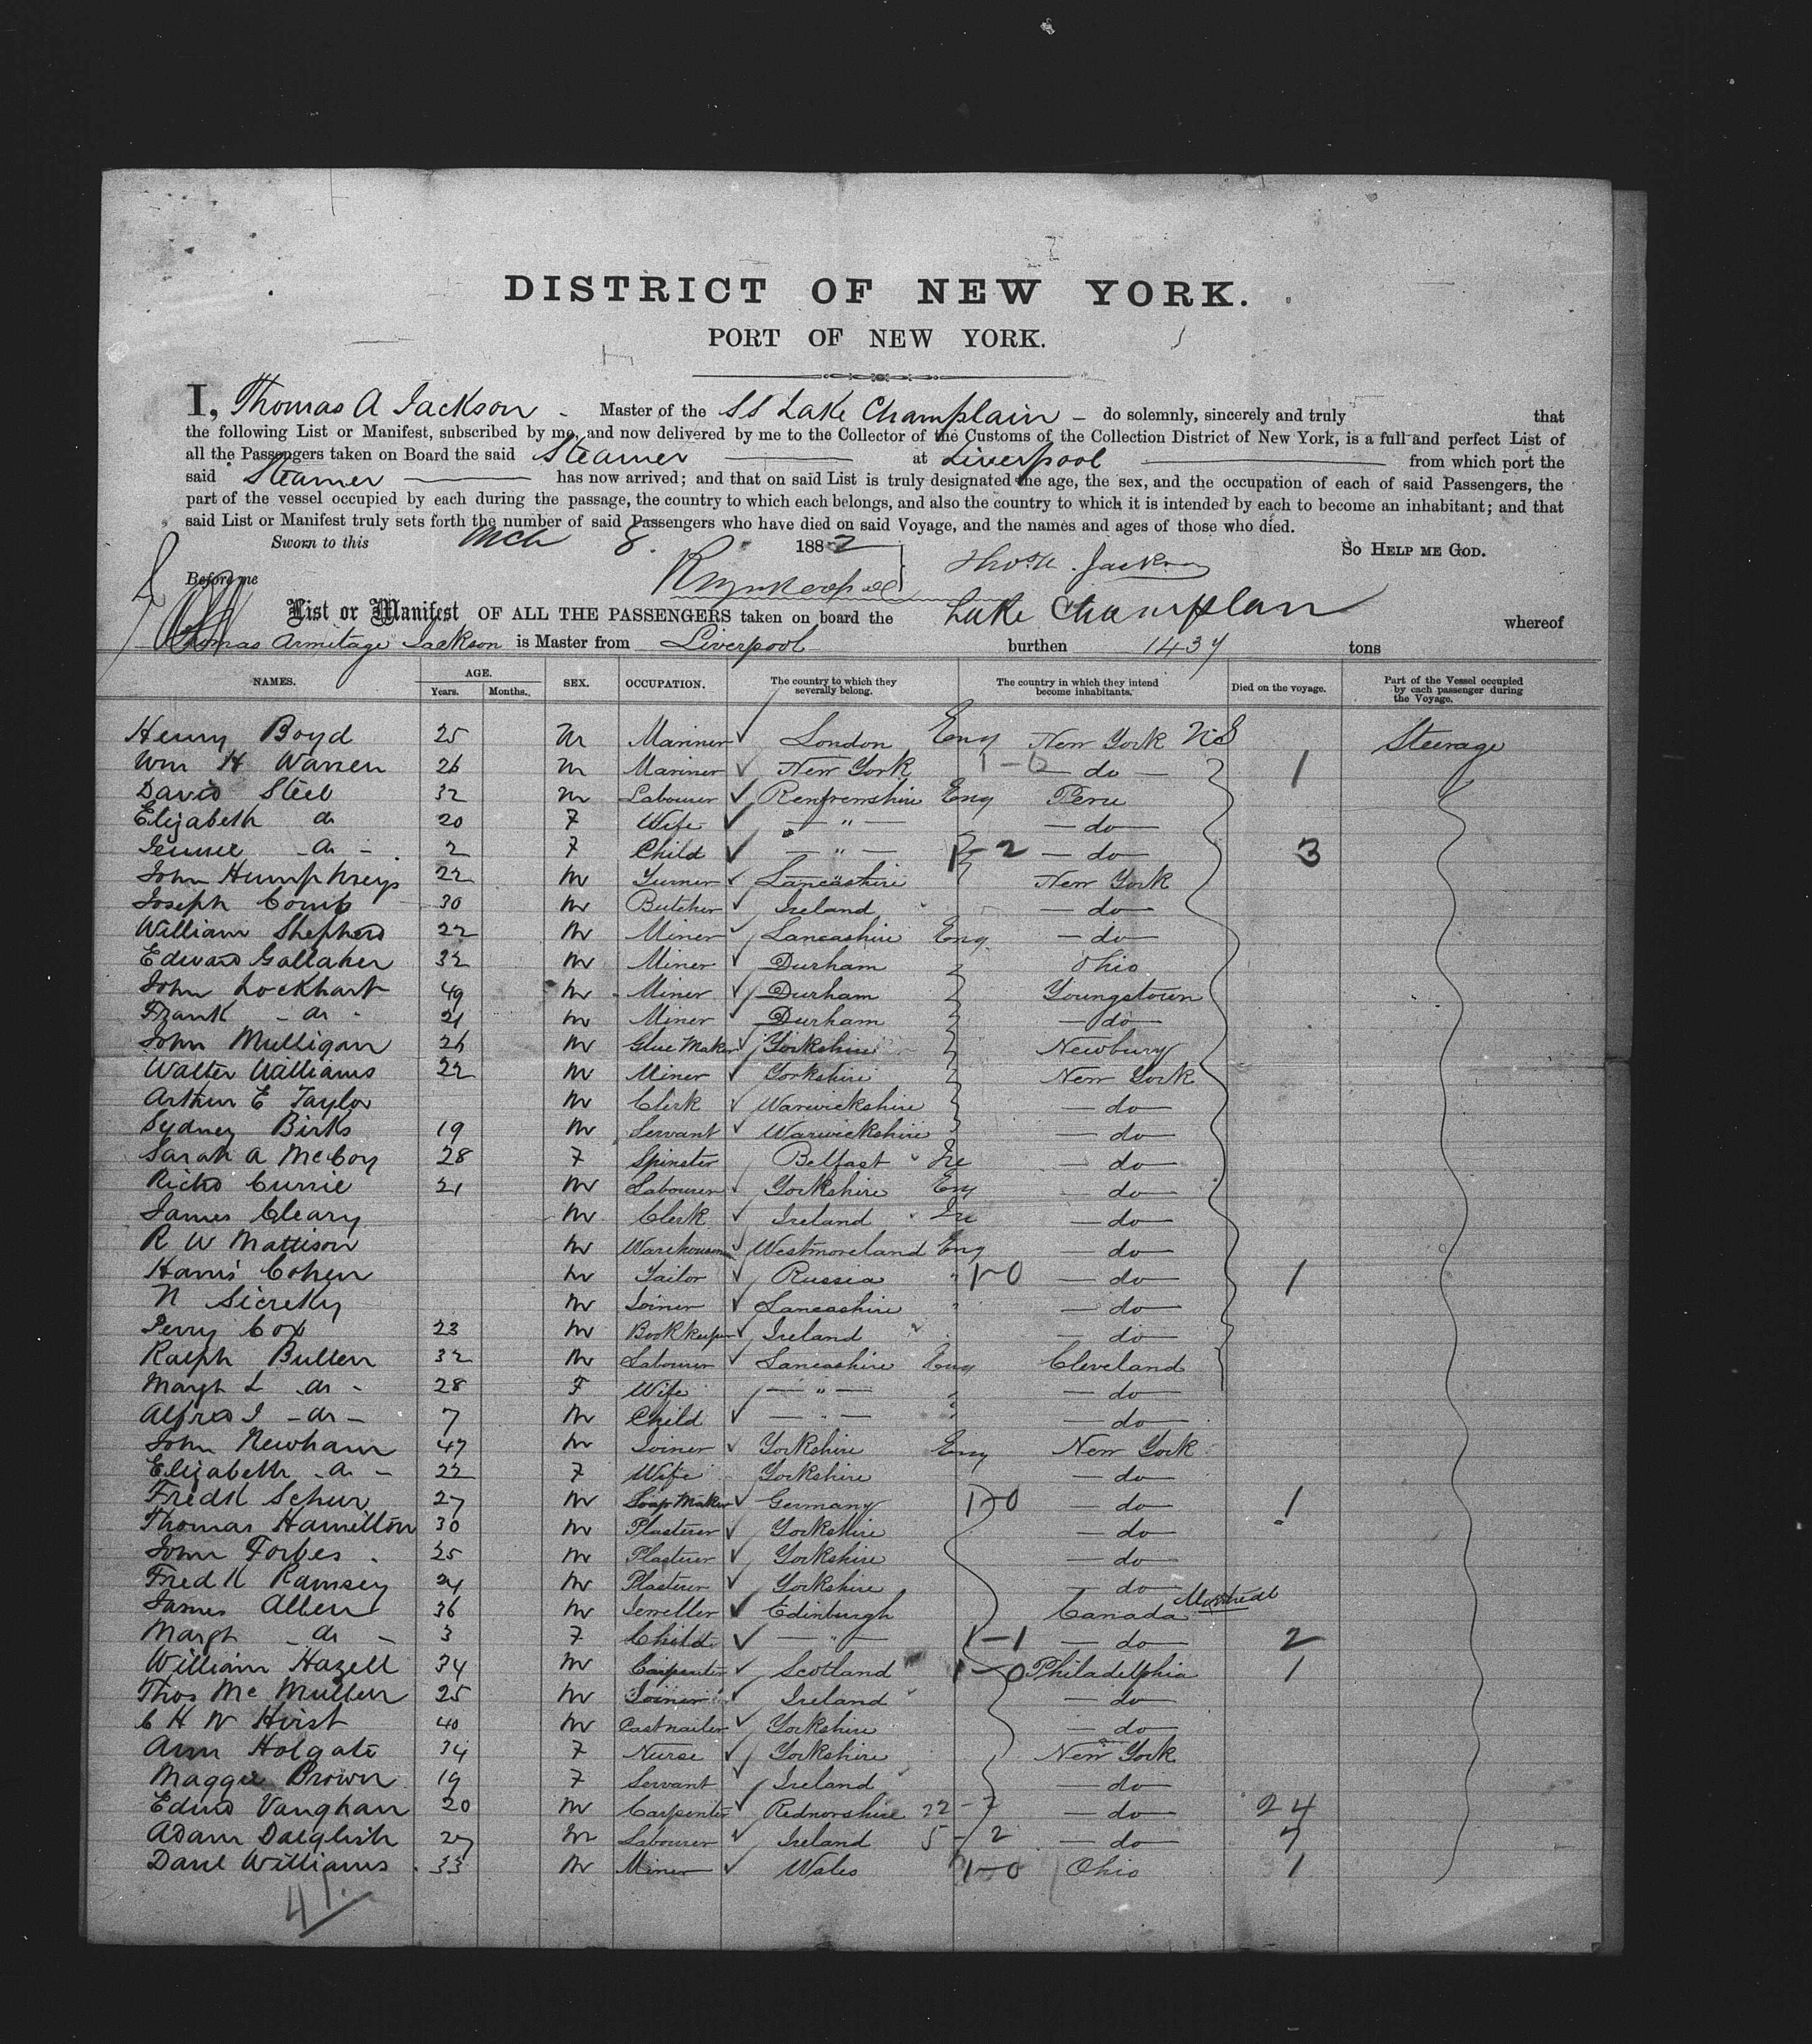 DISTRICT OF NEW YORK.
PORT OF NEW YORK.
I, Thomas A Jackson - Master of the SS Lake Champlain - do solemnly, sincerely and truly that
the following List or Manifest, subscribed by me, and now delivered by me to the Collector of the Customs of the Collection District of New York, is a full and perfect List of
all the Passengers taken on Board the said Steamer at Liverpool from which port the
said Steamer has now arrived; and that on said List is truly designated the age, the sex, and the occupation of each of said Passengers, the
part of the vessel occupied by each during the passage, the country to which each belongs, and also the country to which it is intended by each to become an inhabitant; and that
said List or Manifest truly sets forth the number of said Passengers who have died on said Voyage, and the names and ages of those who died.
Sworn to this Mch 8. 1882 So HELP ME GOD.
Thos. A. Jackson
Before me
List or Manifest OF ALL THE PASSENGERS taken on board the Lake Champlain whereof
Thomas Armitage Jackson is Master from Liverpool burthen 1437 tons
NAMES. AGE. Years. Months. SEX. OCCUPATION. The country to which they severally belong. The country in which they intend to become inhabitants. Died on the voyage. Part of the Vessel occupied by each passenger during the Voyage.
Henry Boyd 25 M Mariner London Eng New York Steerage
Wm H Warren 26 M Mariner New York 1-0 do 1
David Steel 32 M Labourer Renfrewshire Eng Peru
Elizabeth do 20 F Wife " do
Jennie do 2 F Child " 1-2 do 3
John Humphreys 22 M Turner Lancashire New York
Joseph Comb 30 M Butcher Ireland do
William Shepherd 22 M Miner Lancashire Eng do
Edward Gallaher 32 M Miner Durham Ohio
John Lockhart 49 M Miner Durham Youngstown
Frank do 21 M Miner Durham do
John Mulligan 26 M Glue Maker Yorkshire Newbury
Walter Williams 22 M Miner Yorkshire New York
Arthur E Taylor M Clerk Warwickshire do
Sydney Birks 19 M Servant Warwickshire do
Sarah A McCoy 28 F Spinster Belfast Ire do
Richd Currie 21 M Labourer Yorkshire Eng do
James Cleary M Clerk Ireland Ire do
R W Mattison M Warehouseman Westmoreland Eng do
Harris Cohen M Tailor Russia 1-0 do 1
N Sicreky M Joiner Lancashire do
Perry Cox 23 M Bookkeeper Ireland do
Ralph Bullen 32 M Labourer Lancashire Eng Cleveland
Margt L do 28 F Wife " do
Alfred J do 7 M Child do
John Newham 47 M Joiner Yorkshire Eng New York
Elizabeth do 22 F Wife Yorkshire do
Fredk Schur 27 M Soap Maker Germany 1-0 do 1
Thomas Hamilton 30 M Plasterer Yorkshire do
John Forbes 25 M Plasterer Yorkshire do
Fredk Ramsey 24 M Plasterer Yorkshire do
James Allen 36 M Jeweller Edinburgh Canada Montreal
Margt do 3 F Child " 1-1 do 2
William Hazell 34 M Carpenter Scotland 1-0 Philadelphia 1
Thos Mc Mullen 25 M Joiner Ireland do
C H W Hirst 40 M Castnailer Yorkshire do
Ann Holgate 34 F Nurse Yorkshire New York
Maggie Brown 19 F Servant Ireland do
Edwd Vaughan 20 M Carpenter Rednorshire 22-2 do 24
Adam Dalglish 27 M Labourer Ireland 5-2 do 7
Danl Williams 33 M Miner Wales 1-0 Ohio 1
41.